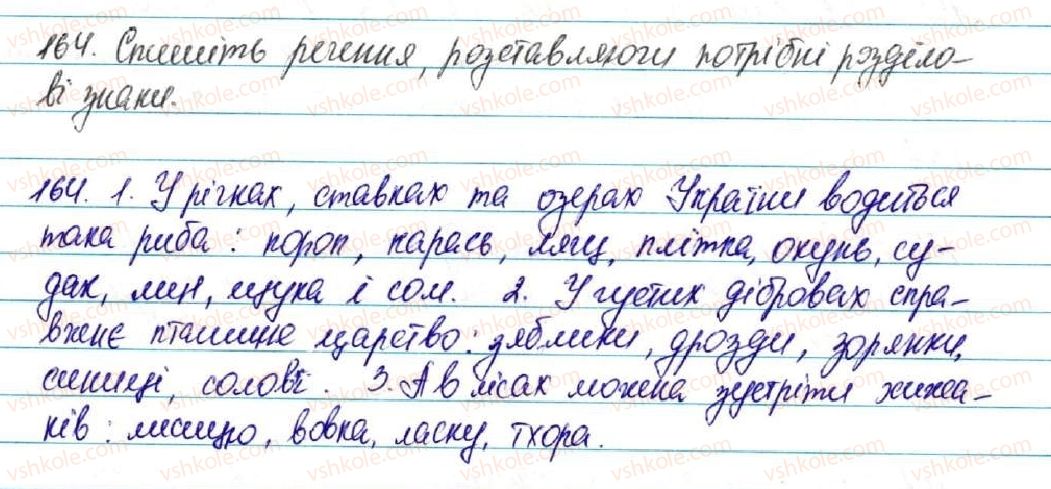 164. Спишіть речення, розставляючи потрібні розділо-
ві знаки.
164. 1. У річках, ставках та озерах України водиться
така риба: короп, карась, лящ, плітка, окунь, су-
дак, лин, щука і сом. 2. У густих дібровах спра-
вжнє пташине царство: зяблики, дрозди, зорянки,
синиці, солов'ї. 3. А в лісах можна зустріти хижа-
ків: лисицю, вовка, ласку, тхора.